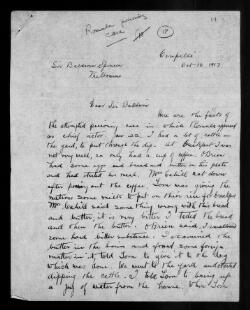 Rumula poisoning
case
19
Oenpelli
Oct. 10. 1917
Sir Baldwin Spencer
Melbourne
Dear Sir Baldwin
Here are the facts of
the attempted poisoning case in which Rumula appeared
as chief actor. Jan 22. I had a lot of cattle in
the yard, to put through the dip. At breakfast I was
not very well, so only had a cup of coffee. O'Brien
had some egg and bread and butter in his plate
and had started his meal. Mrs Cahill sat down
after pouring out the coffee. Tom was giving the
natives some meats to put on their
Mrs Cahill said something wrong with this bread
and butter, it is very bitter. I tasted the bread
and then the butter. O'Brien said, I swallowed
some hard bitter substance. I examined the
butter in the and found some foreign
matter in it, told Tom to give it to the dog
which was done. We went to the yard and started
dipping the cattle. I told Tom to bring up
a jug of water from the house. When Tom